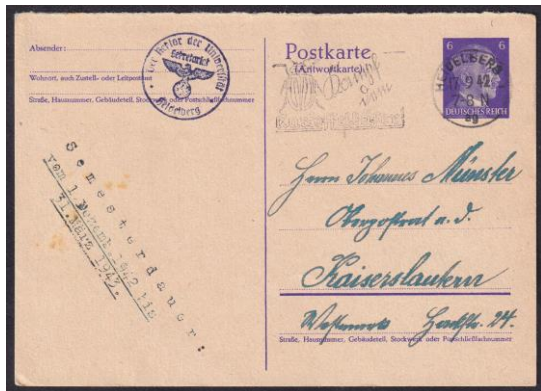 Absender:
Wohnort, auch Zustell- oder Leitpostamt
Straße, Hausnummer, Gebäudeteil, Stockwerk oder Postschließfachnummer
Der Rektor der Universität
Sekretariat
Heidelberg
Semesterdauer:
vom 1. Novemb. 1942 bis
31. März 1943.
Postkarte
(Antwortkarte)
Kampf
HEIDELBERG
17.9.42
7-8 N
6 6
DEUTSCHES REICH
Herrn Johannes Münster
Oberpostrat a. D.
Kaiserslautern
Westmark
24.
Straße, Hausnummer, Gebäudeteil, Stockwerk oder Postschließfachnummer